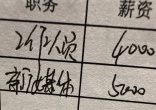 职务 薪资
行人员 4000
新媒体 5000